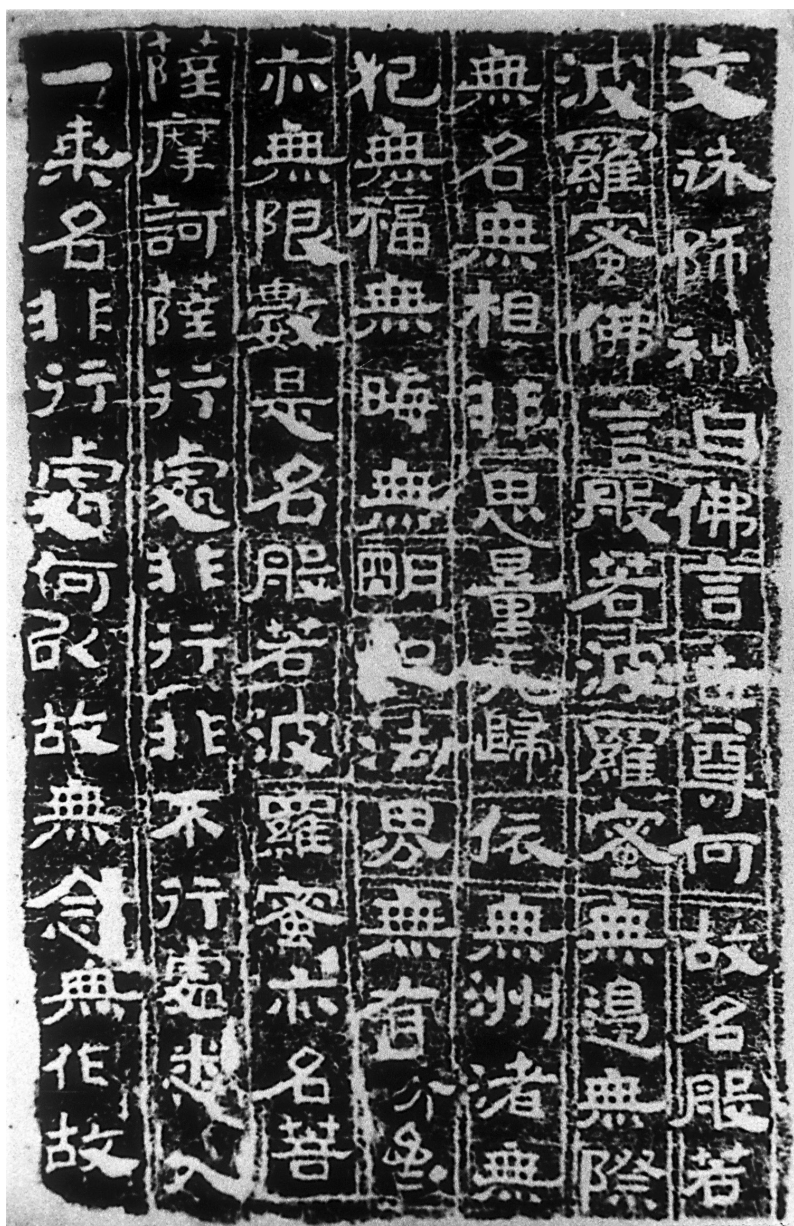 文殊師利白佛言世尊何故名般若
波羅蜜佛言般若波羅蜜無邊無際
無名無相非思量无歸依無洲渚無
犯無福無晦無明如法界無有分齊
亦無限數是名般若波羅蜜亦名菩
薩摩訶薩行處非行非不行處悉入
一乘名非行處何以故無念無作故